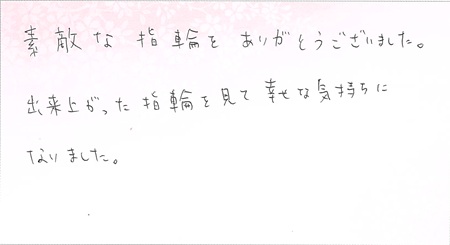 素敵な指輪をありがとうございました。
出来上がった指輪を見て幸せな気持ちに
なりました。